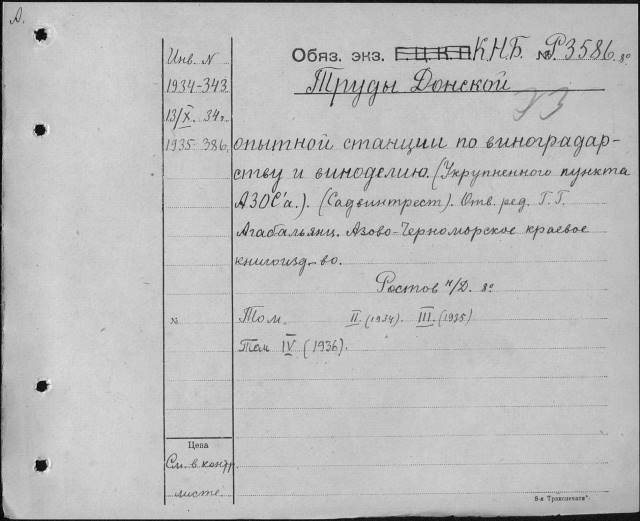 А.
Обяз. экз. Г.Ц.К.П К.Н.Б. № Р3586 8º
Труды Донской
33
Инв. N
1934-343
13/X. 34г.
1935-386.
опытной станции по виноградар-
ству и виноделию. (Укрупненного пункта
АЗОС'а.). (Садвинтрест). Отв. ред. Г. Г.
Агабальянц. Азово-Черноморское краевое
книгоизд-во.
Ростов н/Д. 8º
№ Том. II. (1934). III. (1935)
Том IV (1936).
Цена
См. в. контр.
листе
8-я Транспечати".